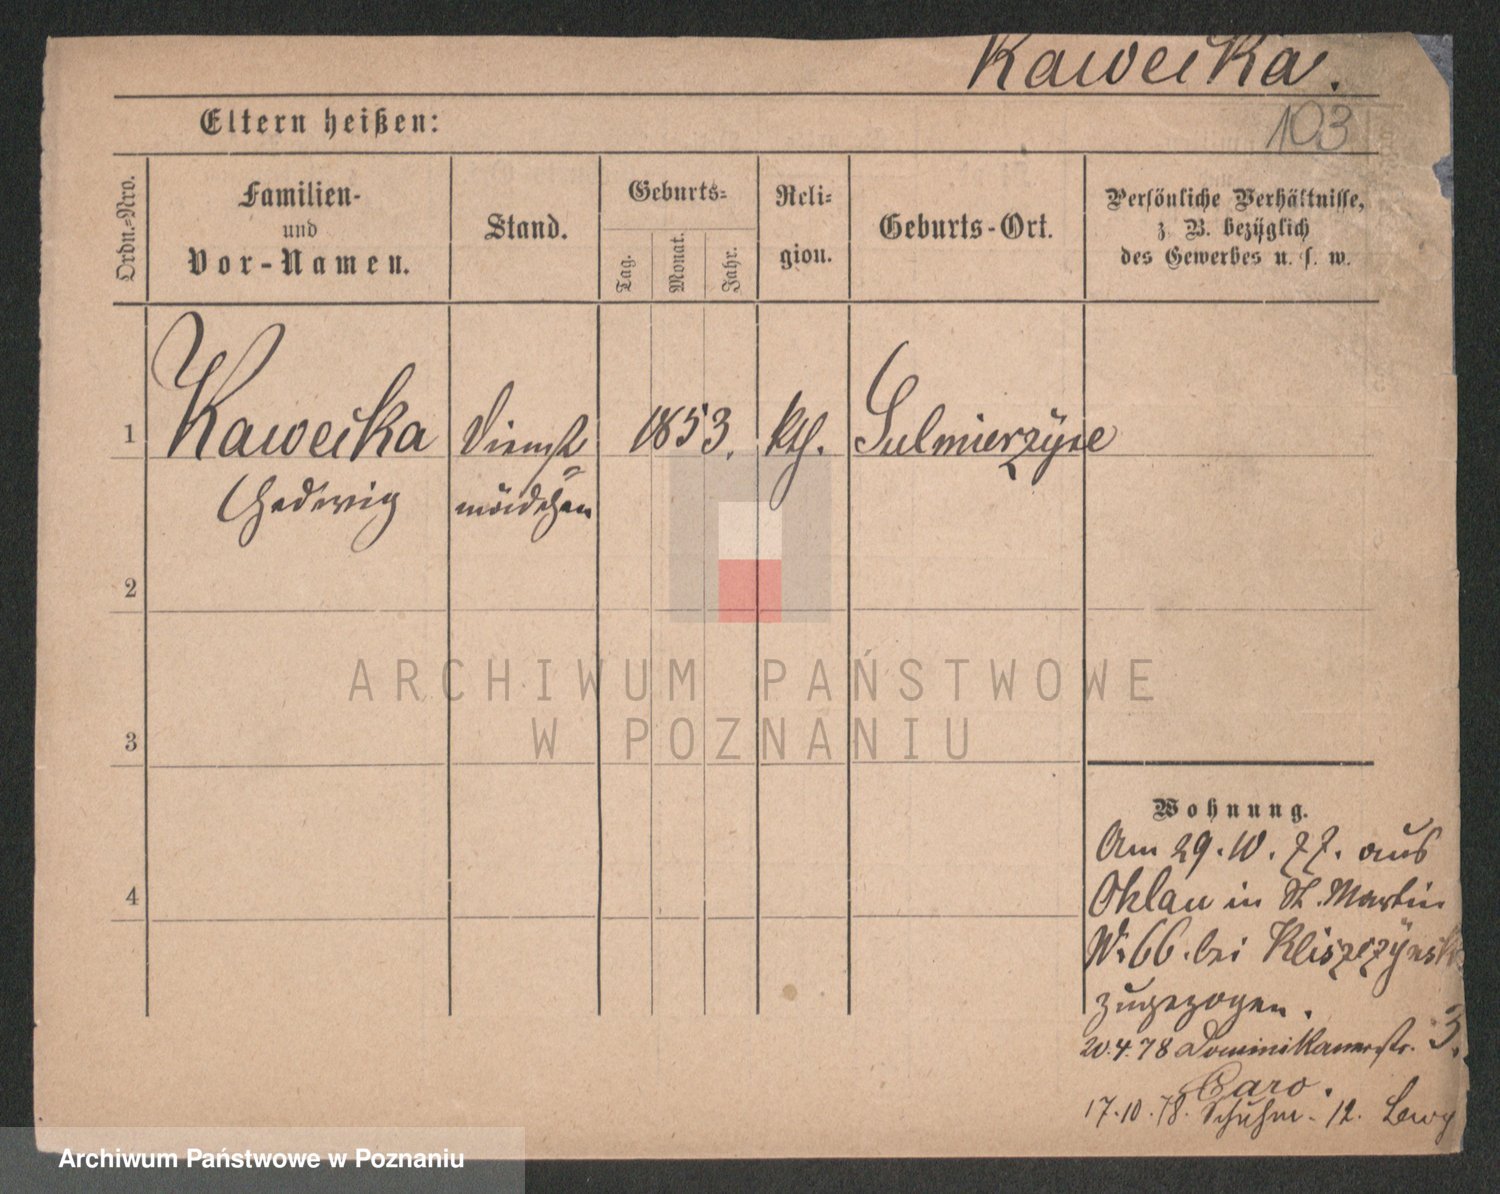 Kawecka.
103
Eltern heißen:
Ordn.-Nro.
Familien-
und
Vor-Namen.
Stand.
Geburts-
Tag.
Monat.
Jahr.
Reli-
gion.
Geburts-Ort.
Persönliche Verhältnisse,
z. B. bezüglich
des Gewerbes u. s. w.
1 Kawecka Dienst 1853. kth. Sulmierzyce
Hedwig mädchen
2
3
4
ARCHIWUM PAŃSTWOWE
W POZNANIU
Wohnung.
Am 29.10.77. aus
Ohlau in St. Martin
N. 66. bei Kliszczynski
zugezogen.
20.4.78 Dominikanerstr. 3.
Caro.
17.10.78. Schuhm. 12. Lewy
Archiwum Państwowe w Poznaniu